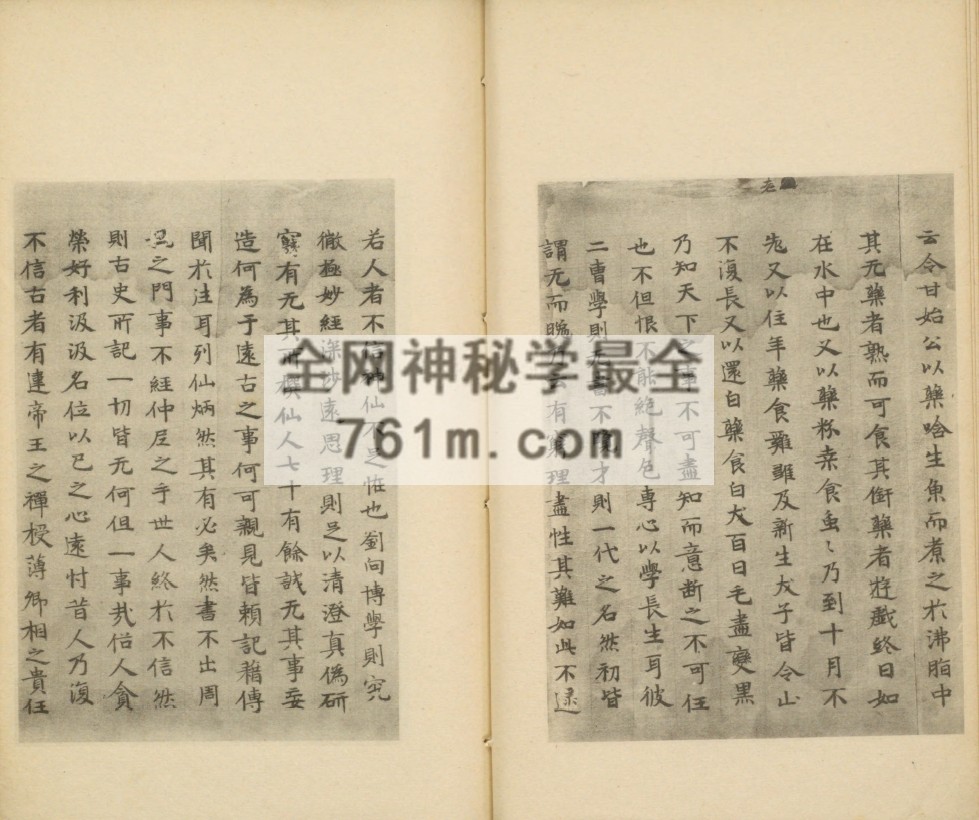 云令甘始公以藥唅生魚而煮之於沸脂中
其无藥者熟而可食其銜藥者游戲終日如
在水中也又以藥粉桒食蚕〻乃到十月不
老又以住年藥食雞雛及新生犬子皆令山
不復長又以還白藥食白犬百日毛盡變黑
乃知天下之事不可盡知而意断之不可任
也不但恨不能絶聲色專心以學長生耳彼
二曹學則不才則一代之名然初皆
謂无而晚有窮理盡性其難如此不逮
若人者不信神仙不足恠也劉向博學則究
微極妙經深涉遠思理則足以清澄真偽研
覈有无其所撰仙人七十有餘誠无其事妄
造何為乎遠古之事何可親見皆頼記藉傳
聞於注耳列仙炳然其有必矣然書不出周
之門事不經仲尼之手世人終於不信然
則古史所記一切皆无何但一事㦲俗人貪
榮好利汲汲名位以己之心遠忖昔人乃復
不信古者有逹帝王之禪授薄卿相之貴任
老
全网神秘学最全
761m.com